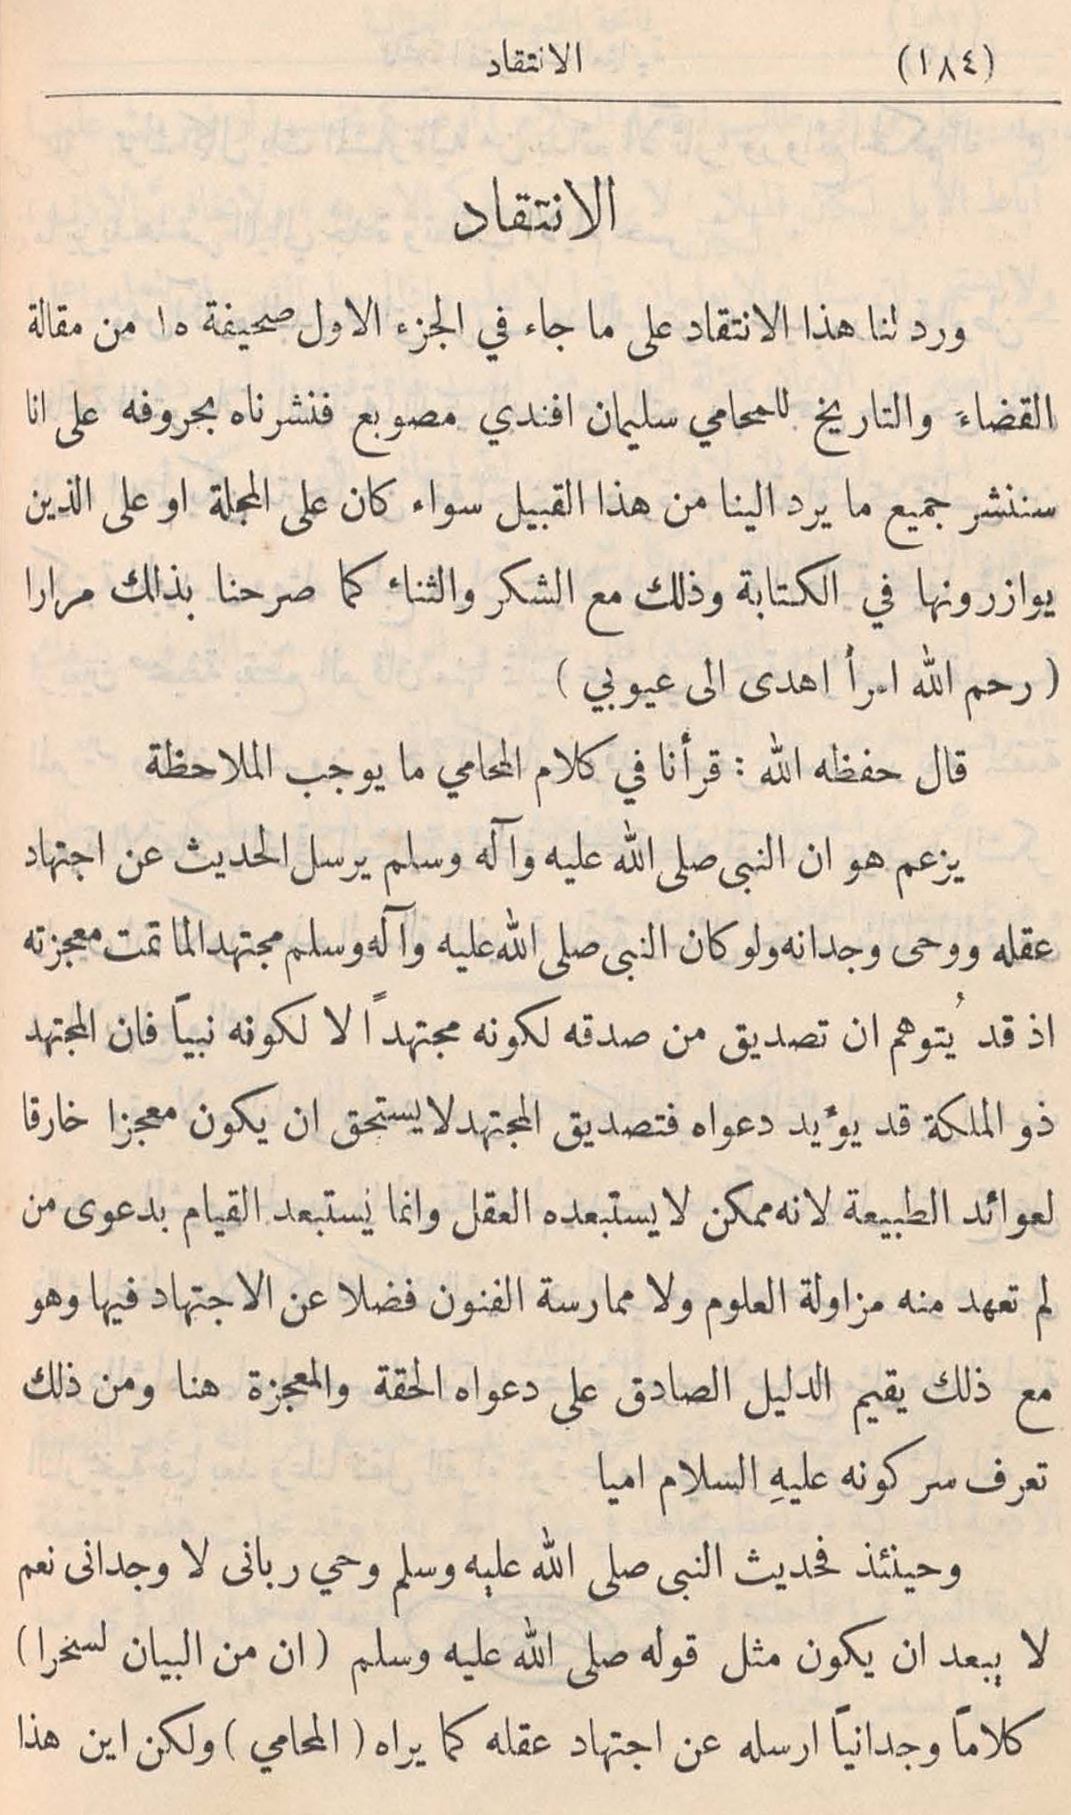 (١٨٤) الانتقاد
الانتقاد
ورد لنا هذا الانتقاد على ما جاء في الجزء الاول صحيفة ١٥ من مقالة
القضاءَ والتاريخ للمحامي سليمان افندي مصوبع فنشرناه بحروفه على انا
سننشر جميع ما يرد الينا من هذا القبيل سواء كان على المجلة او على الذين
يوازرونها في الكتابة وذلك مع الشكر والثناء كما صرحنا بذلك مرارا
(رحم الله امرأ اهدى الى عيوبي)
قال حفظه الله : قرأنا في كلام المحامي ما يوجب الملاحظة
يزعم هو ان النبي صلى الله عليه وآله وسلم يرسل الحديث عن اجتهاد
عقله ووحى وجدانه ولو كان النبى صلى الله عليه وآله وسلم مجتهدا لما تمت معجزته
اذ قد يُتوهم ان تصديق من صدقه لكونه مجتهداً لا لكونه نبياً فان المجتهد
ذو الملكة قد يوءيد دعواه فتصديق المجتهد لا يستحق ان يكون معجزا خارقا
لعوائد الطبيعة لانه ممكن لا يستبعده العقل وانما يستبعد القيام بدعوى من
لم تعهد منه مزاولة العلوم ولا ممارسة الفنون فضلا عن الاجتهاد فيها وهو
مع ذلك يقيم الدليل الصادق على دعواه الحقة والمعجزة هنا ومن ذلك
تعرف سر كونه عليهِ السلام اميا
وحينئذ فحديث النبى صلى الله عليه وسلم وحي ربانى لا وجدانى نعم
لا يبعد ان يكون مثل قوله صلى الله عليه وسلم (ان من البيان لسخرا)
كلاماً وجدانياً ارسله عن اجتهاد عقله كما يراه (المحامي) ولكن اين هذا